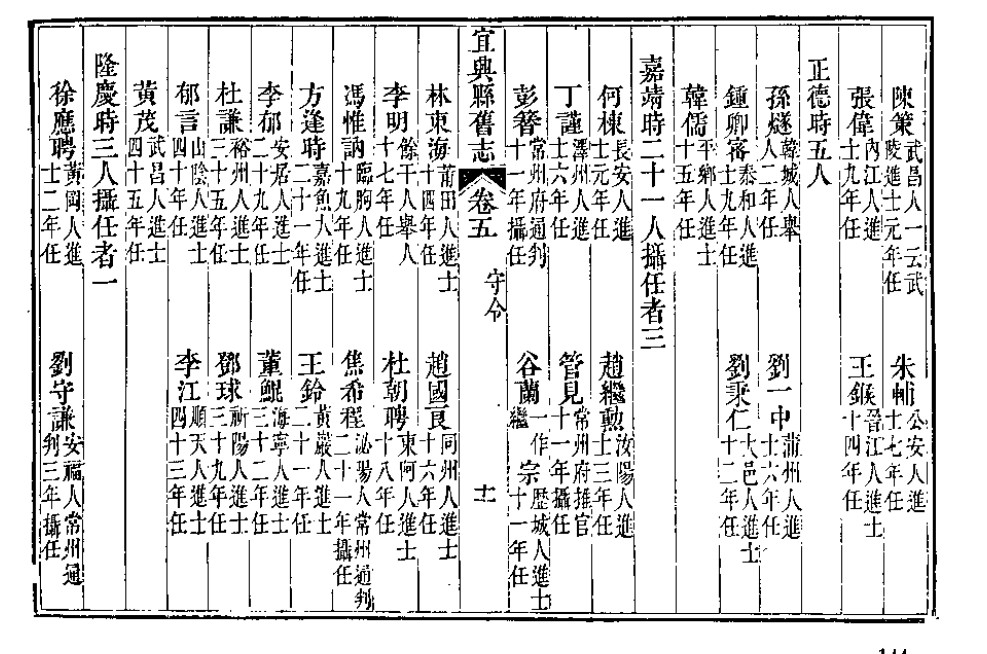 陳策 武昌人一云武陵進士元年任 朱輔 公安人進士七年任
張偉 內江人進士九年任 王鍭 晉江人進士十四年任
正德時五人
孫燧 韓城人舉人二年任 劉一中 蒲州人進士六年任
鍾卿寀 泰和人進士九年任 劉秉仁 大邑人進士十二年任
韓儒 平鄉人進士十五年任
嘉靖時二十一人攝任者三
何棟 長安人進士元年任 趙繼勳 汝陽人進士三年任
丁謹 澤州人進士六年任 管見 常州府推官十一年攝任
彭簪 常州府通判十一年攝任 谷蘭 一作繼宗歷城人進士十一年任
宜興縣舊志 卷五 守令 十一
林東海 莆田人進士十四年任 趙國良 同州人進士十六年任
李明 餘干人舉人十七年任 杜朝聘 東阿人進士十八年任
馮惟訥 臨朐人進士十九年任 焦希程 泌陽人常州通判二十一年攝任
方逢時 嘉魚人進士二十一年任 王鈴 黃巖人進士二十一年任
李郁 安居人進士二十九年任 董鯤 海寧人進士三十二年任
杜謙 裕州人進士三十五年任 鄧球 祈陽人進士三十九年任
郁言 山陰人進士四十年任 李江 順天人進士四十三年任
黃茂 武昌人進士四十五年任
隆慶時三人攝任者一
徐應聘 黃岡人進士二年任 劉守謙 安福人常州通判三年攝任